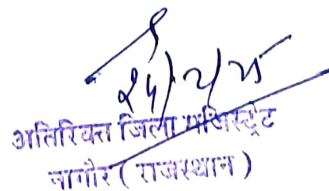 अतिरिक्त जिला मजिस्ट्रेट
नागौर ( राजस्थान )